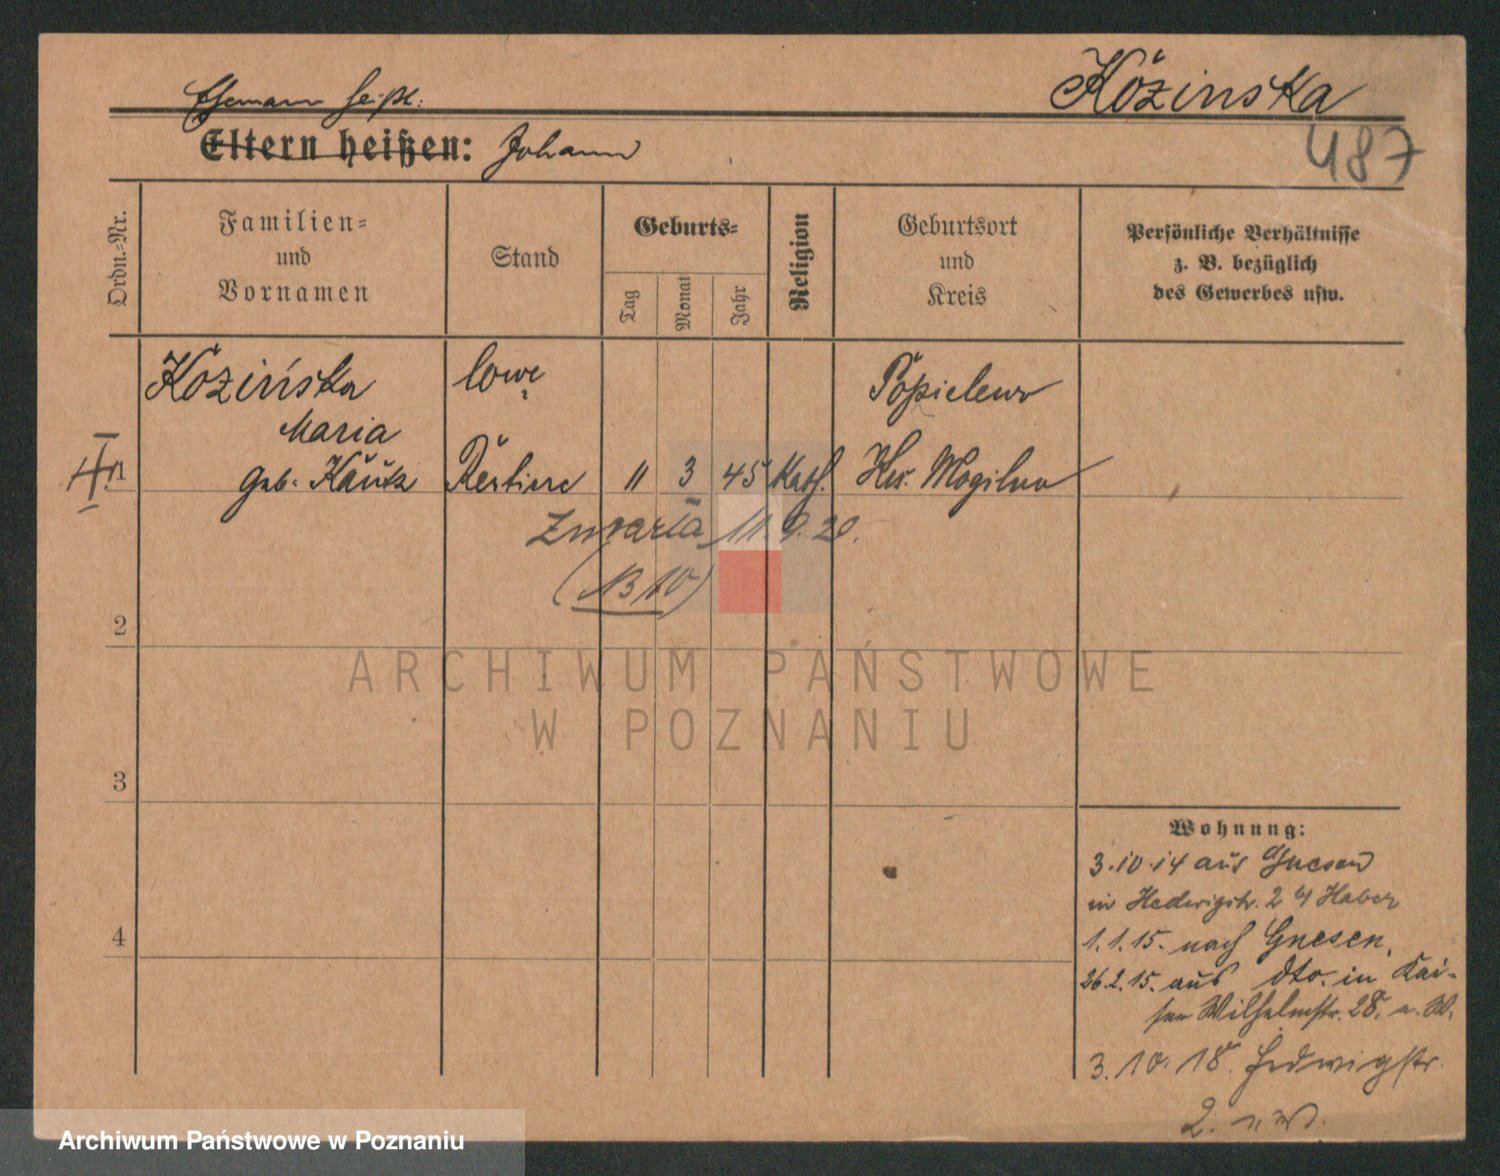 Kozinska
Ehemann heißt:
Eltern heißen: Johann
487
Ordn.-Nr.
Familien-
und
Vornamen
Stand
Geburts-
Tag
Monat
Jahr
Religion
Geburtsort
und
Kreis
Persönliche Verhältnisse
z. B. bezüglich
des Gewerbes usw.
Kozińska
Maria
geb.
1
11 3 45 Kath.
Popielewo
Krs. Mogilno
Zmarła 11.9.20.
2
ARCHIWUM PAŃSTWOWE
W POZNANIU
3
4
Wohnung:
3.10.14 aus Gnesen
in Hedwigstr. 2 Haber
1.1.15. nach Gnesen,
26.2.15. aus dto. in Kai-
ser Wilhelmstr. 28. n. W.
3.10.18. Hedwigstr.
2. n. W.
Archiwum Państwowe w Poznaniu